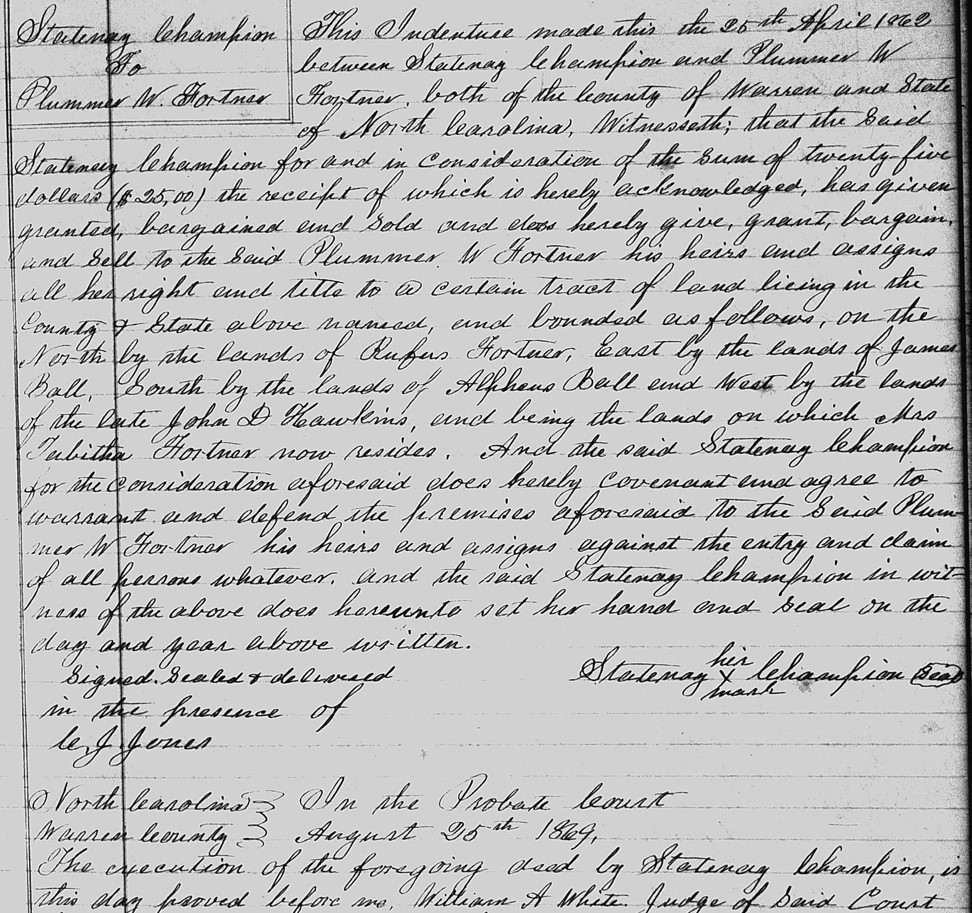 Statenay Champion
To
Plummer W. Fortner
This Indenture made this the 25th April 1862
between Statenay Champion and Plummer W
Fortner, both of the County of Warren and State
of North Carolina, Witnesseth; that the Said
Statenay Champion for and in consideration of the Sum of twenty-five
dollars ($25,00) the receipt of which is hereby acknowledged, has given
granted, bargained and Sold and does hereby give, grant, bargain,
and Sell to the Said Plummer W Fortner his heirs and assigns
all her right and title to a certain tract of land lieing in the
County & State above named, and bounded as follows, on the
North by the lands of Rufus Fortner, East by the lands of James
Ball, South by the lands of Alpheus Ball and West by the lands
of the late John D Hawkins, and being the lands on which Mrs
Tabitha Fortner now resides. And the said Statenay Champion
for the Consideration aforesaid does hereby covenant and agree to
warrant and defend the premises aforesaid to the Said Plum-
mer W Fortner his heirs and assigns against the entry and claim
of all persons whatever, and the said Statenay Champion in wit-
ness of the above does hereunto set her hand and Seal on the
day and year above written.
Signed. Sealed & delivered
in the presence of
C. J. Jones
Statenay her X mark Champion Seal
North Carolina } In the Probate Court
Warren County } August 25th 1869,
The execution of the foregoing deed by Statenay Champion, is
this day proved before me, William A White Judge of Said Court